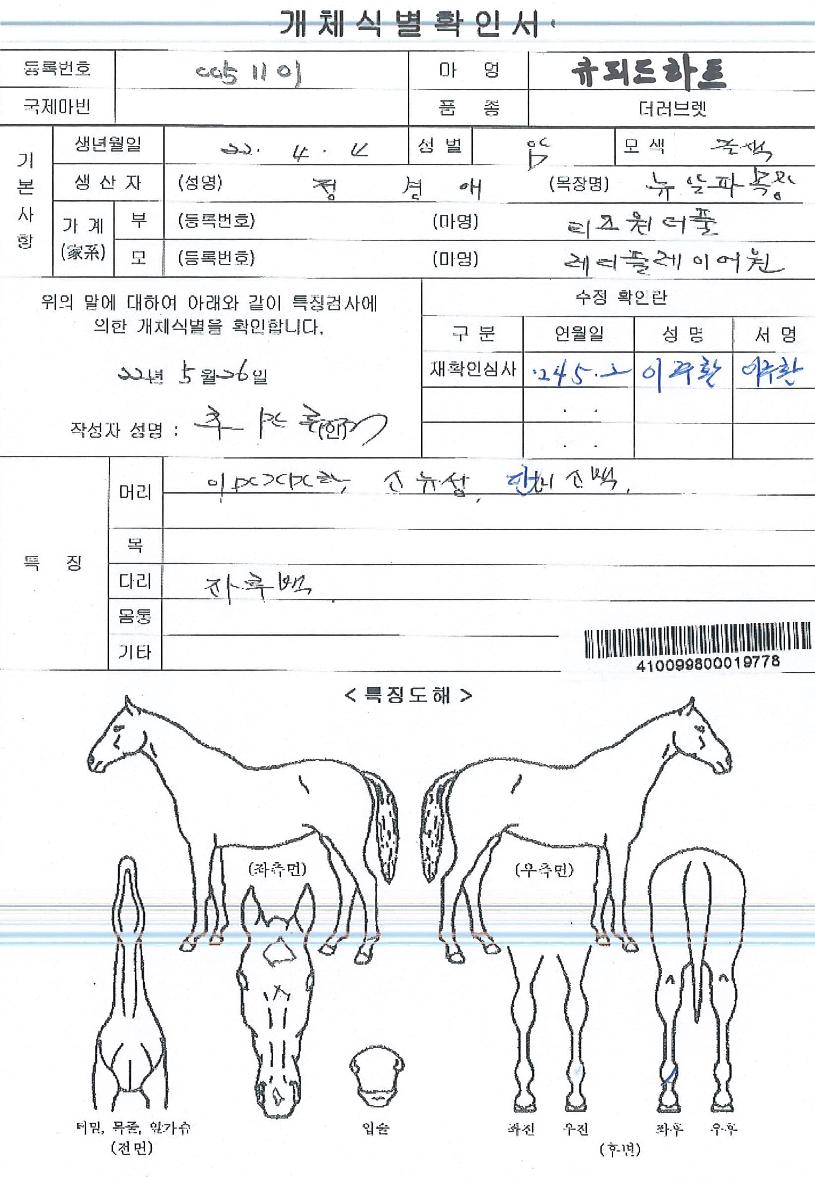 개체식별확인서
등록번호 0051101 마 명 큐피드하트
국제마번 품 종 더러브렛
기본사항 생년월일 22. 4. 4 성별 암 모색
생 산 자 (성명) 정 경 애 (목장명) 뉴알파목장
가 계 (家系) 부 (등록번호) (마명) 티즈원더풀
모 (등록번호) (마명)
위의 말에 대하여 아래와 같이 특징검사에
의한 개체식별을 확인합니다.
22년 5월 26일
작성자 성명 : (인)
수정 확인란
구 분 연월일 성 명 서 명
재확인심사 24.5.2 이주환 이주환
. .
. .
특 징
머리
목
다리 좌후백
몸통
기타
410099800019778
< 특징도해 >
(좌측면) (우측면)
턱밑, 목줄, 앞가슴
(전면)
입술
좌전 우전 좌후 우후
(후면)